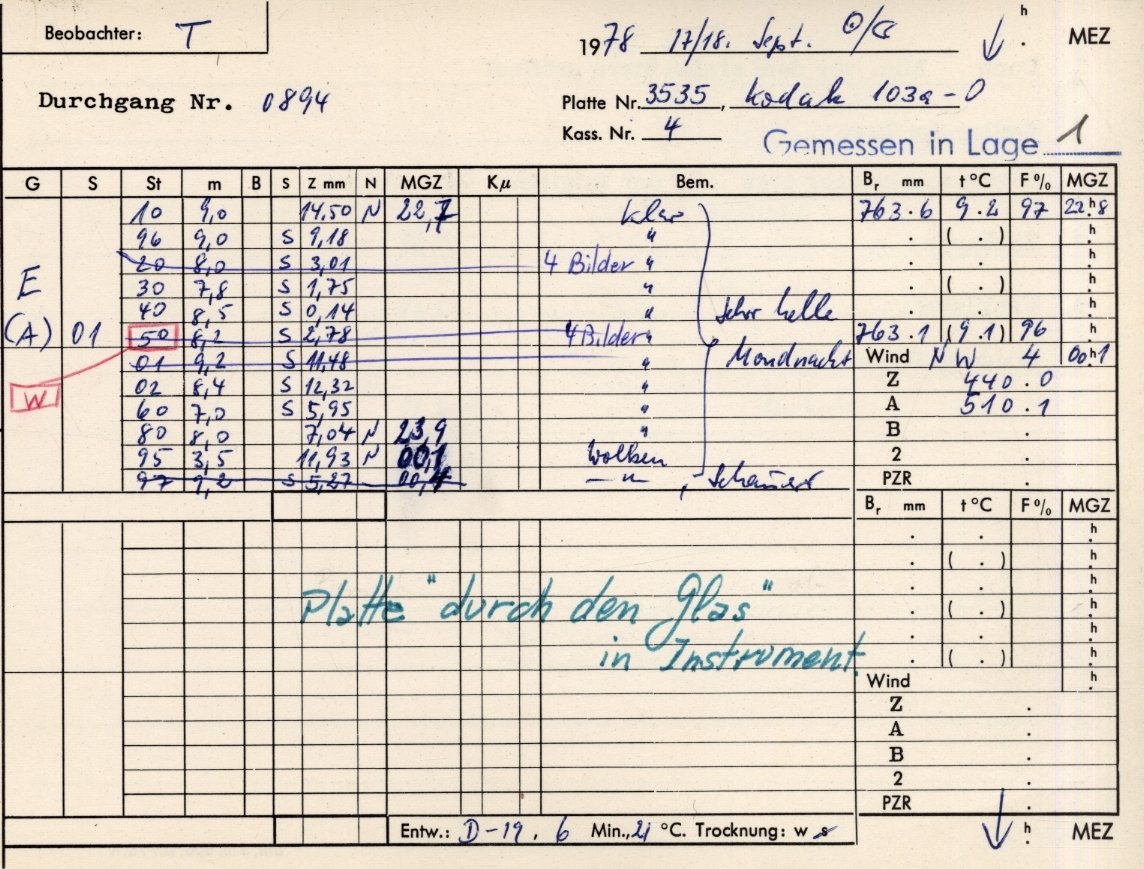 Beobachter: T
1978 17/18. Sept. h . MEZ
Durchgang Nr. 0894
Platte Nr. 3535, Kodak 103a-O
Kass. Nr. 4
Gemessen in Lage 1
G S St m B S Z mm N MGZ Kμ Bem. Br mm t°C F% MGZ
10 9,0 14,50 N 22,7 klar 763.6 9.2 97 22h8
96 9,0 S 9,18 " . ( . ) h
20 8,0 S 3,01 4 Bilder " . . h
E 30 7,8 S 1,75 " . ( . ) h
40 8,5 S 0,14 " Sehr helle . . h
(A) 01 50 8,2 S 2,78 4 Bilder " 763.1 (9.1) 96 h
01 9,2 S 11,48 " Mondnacht Wind NW 4 00h1
W 02 8,4 S 12,32 " Z 440.0
60 7,0 S 5,95 " A 510.1
80 8,0 7,04 N 23,9 " B .
95 3,5 11,93 N 00,1 Wolken 2 .
97 9,2 S 5,27 00,4 — " — , PZR .
Br mm t°C F% MGZ
. . h
. ( . ) h
. . h
Platte "durch den Glas" . ( . ) h
. . h
in Instrument. . ( . ) h
Wind h
Z .
A .
B .
2 .
PZR .
Entw.: D-19, 6 Min., 21 °C. Trocknung: w s h . MEZ